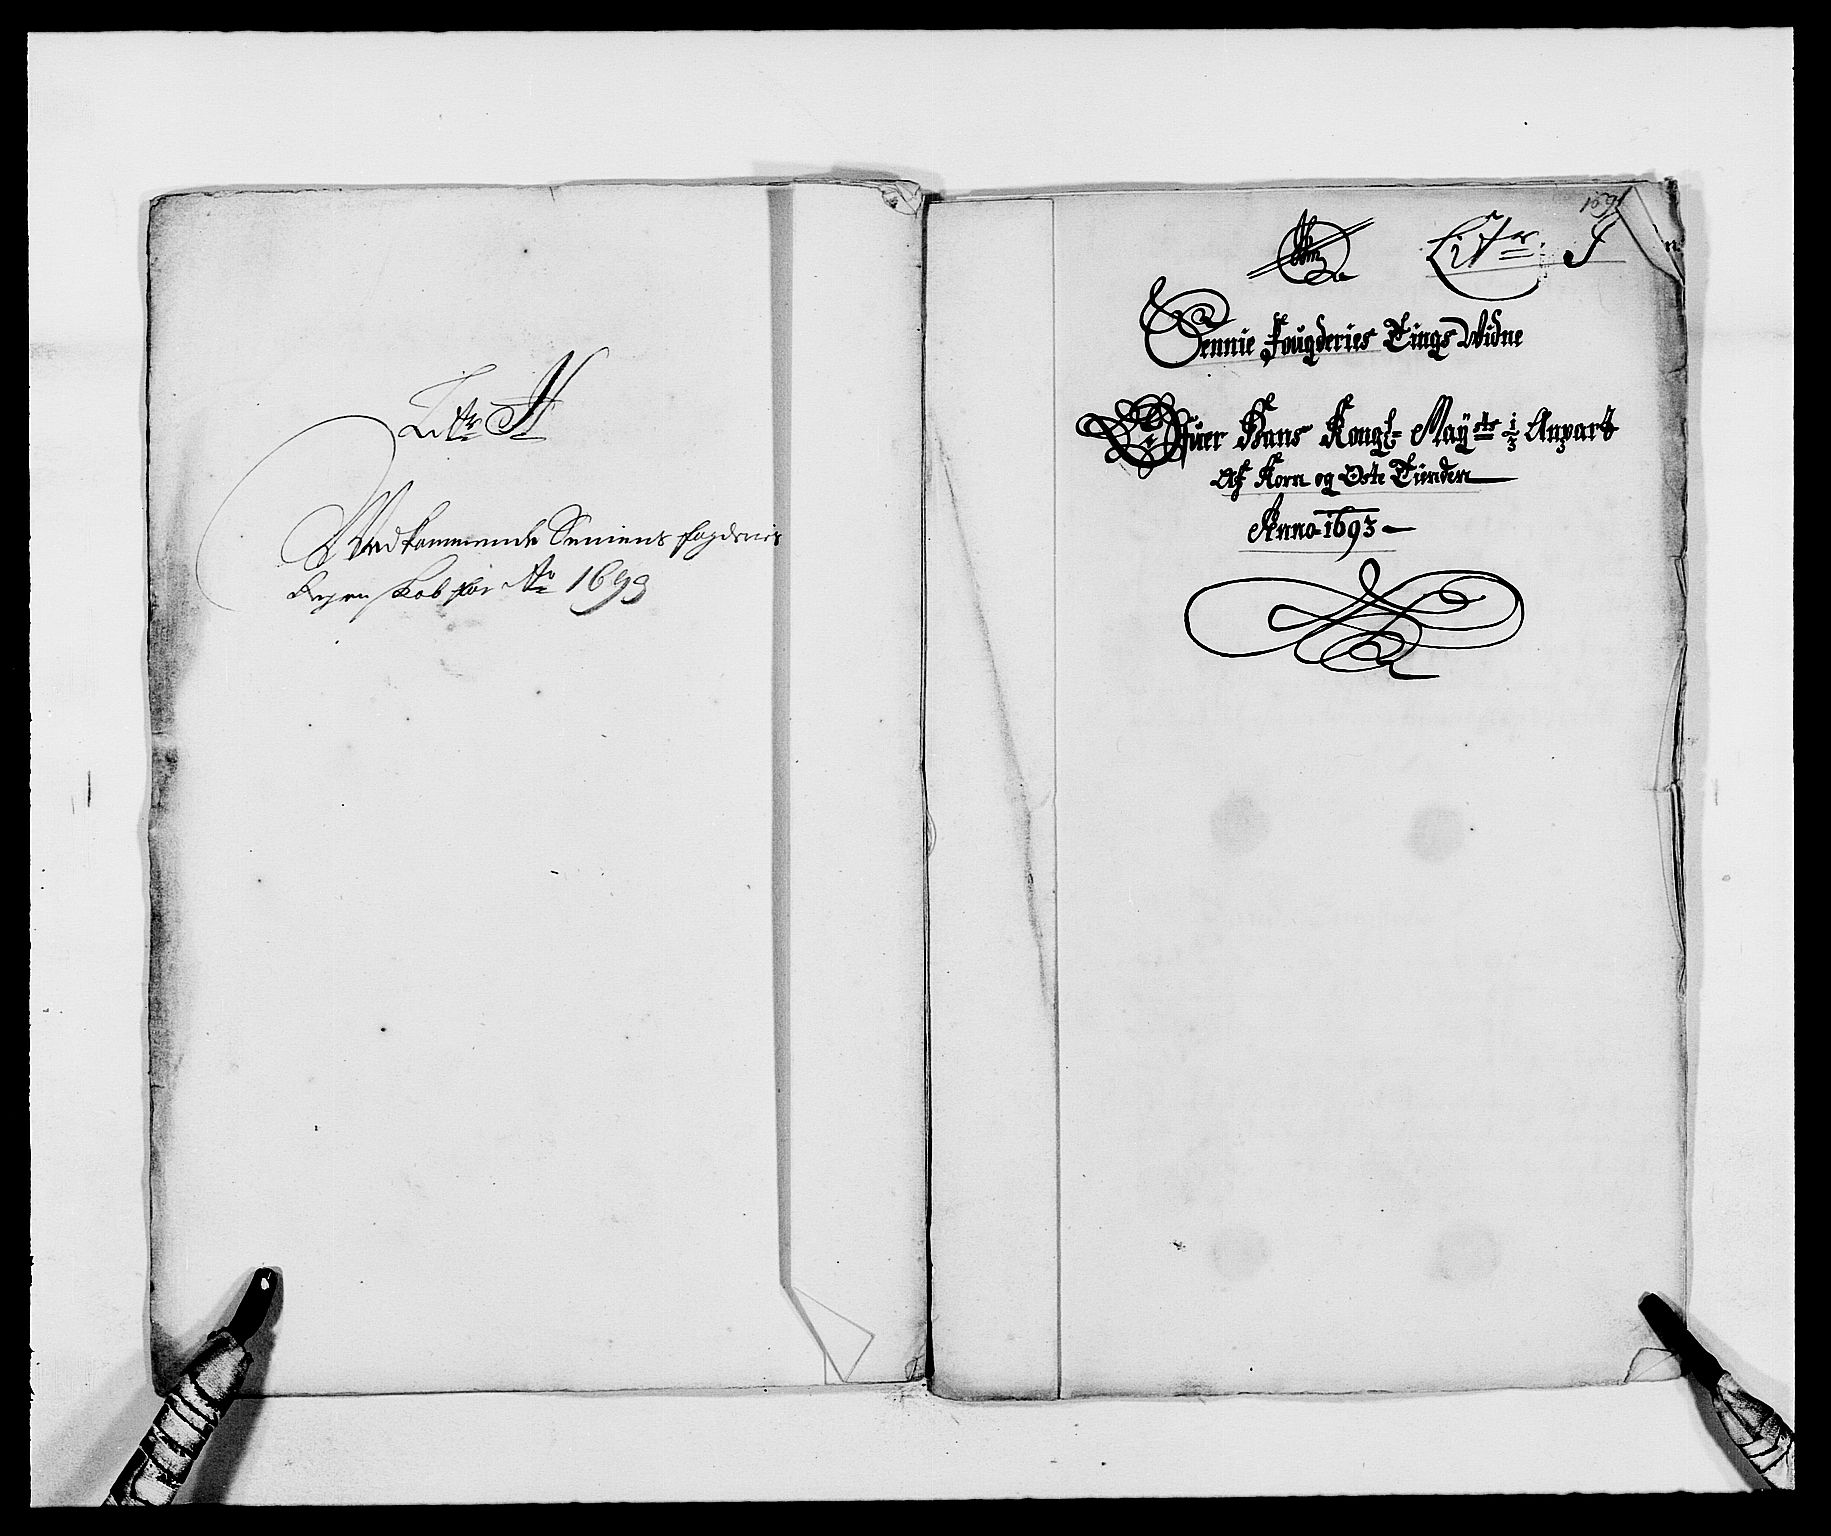 Litr H
Vedkommende Senniens fogderies
Regenskab for Ao 1693
1691
Litr. J
Sennie Fougderies Tings Widne
Ofuer Hans Kongl- Mayts 1/3 Anpart
Af Korn og Oste Tienden
Anno-1693-